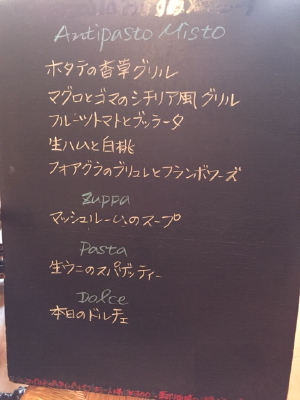 Antipasto Misto
ホタテの香草グリル
マグロとゴマのシチリア風グリル
フルーツトマトとブッラータ
生ハムと白桃
フォアグラのブリュレとフランボワーズ
Zuppa
マッシュルームのスープ
Pasta
生ウニのスパゲッティー
Dolce
本日のドルチェ